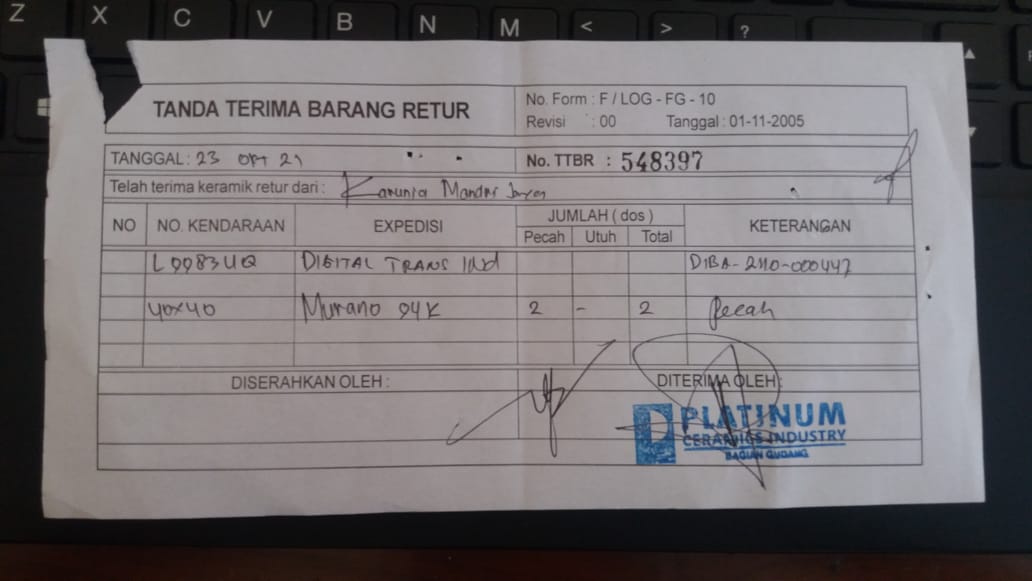 Z X C V B N M < > ?
TANDA TERIMA BARANG RETUR
No. Form : F / LOG - FG - 10
Revisi : 00 Tanggal : 01-11-2005
TANGGAL : 23 okt 21
No. TTBR : 548397
Telah terima keramik retur dari : Karunia Mandiri Jaya
NO NO. KENDARAAN EXPEDISI JUMLAH ( dos ) KETERANGAN
Pecah Utuh Total
L 9983 UQ DIGITAL TRANS IND DIBA-2110-000447
40x40 Murano 04K 2 - 2 Pecah
DISERAHKAN OLEH : DITERIMA OLEH :
PLATINUM
CERAMICS INDUSTRY
BAGIAN GUDANG